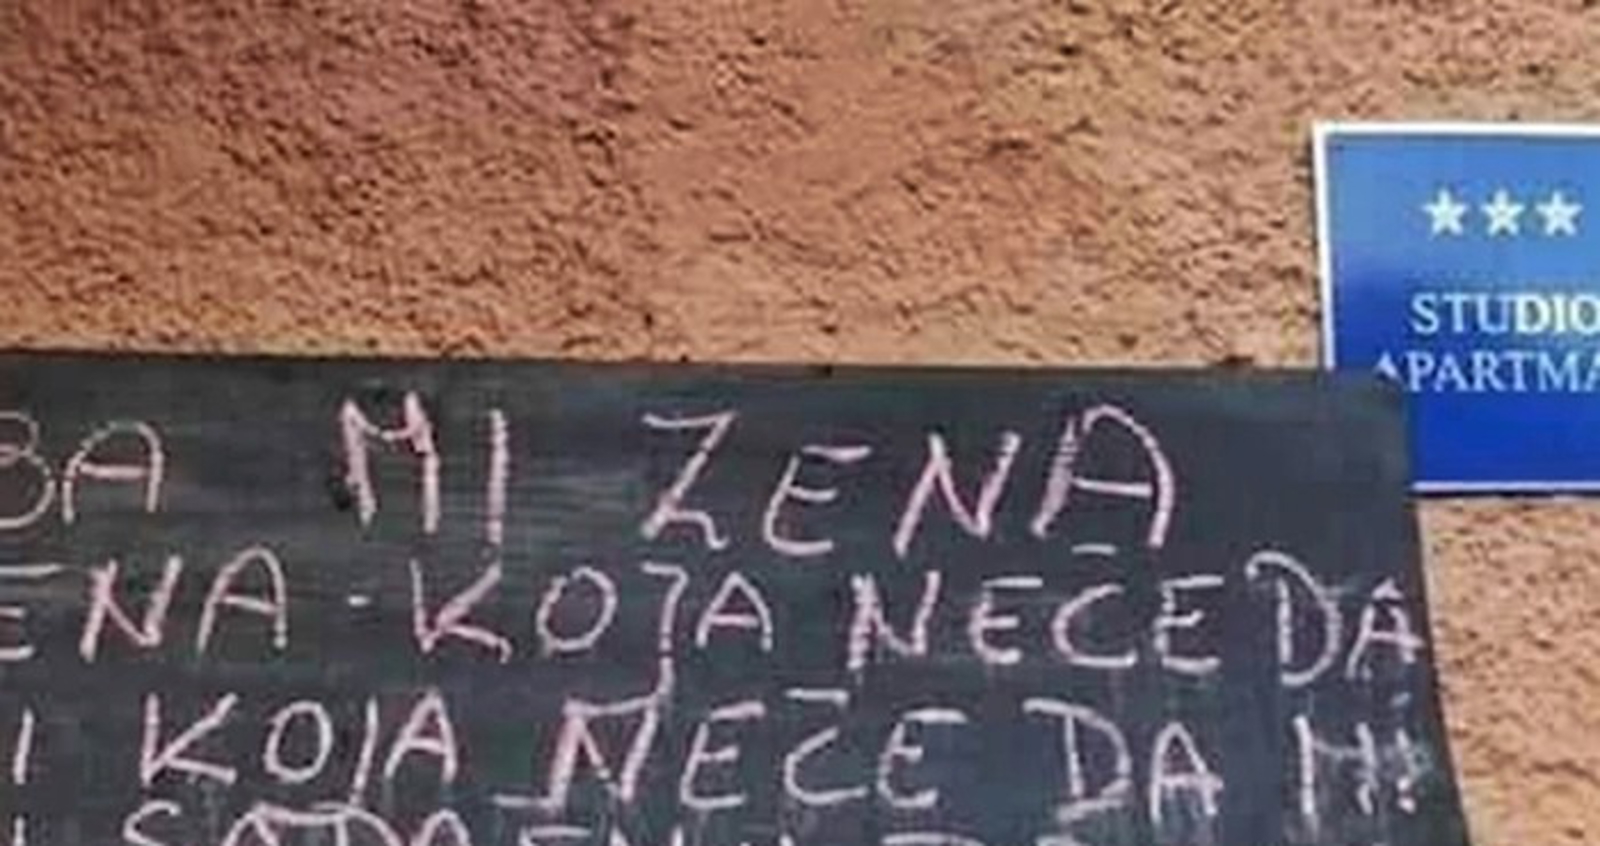 ★★★
STUDIO
APARTMA
BA MI ZENA
ENA - KOJA NEĆE DA
I KOJA NEĆE DA MI